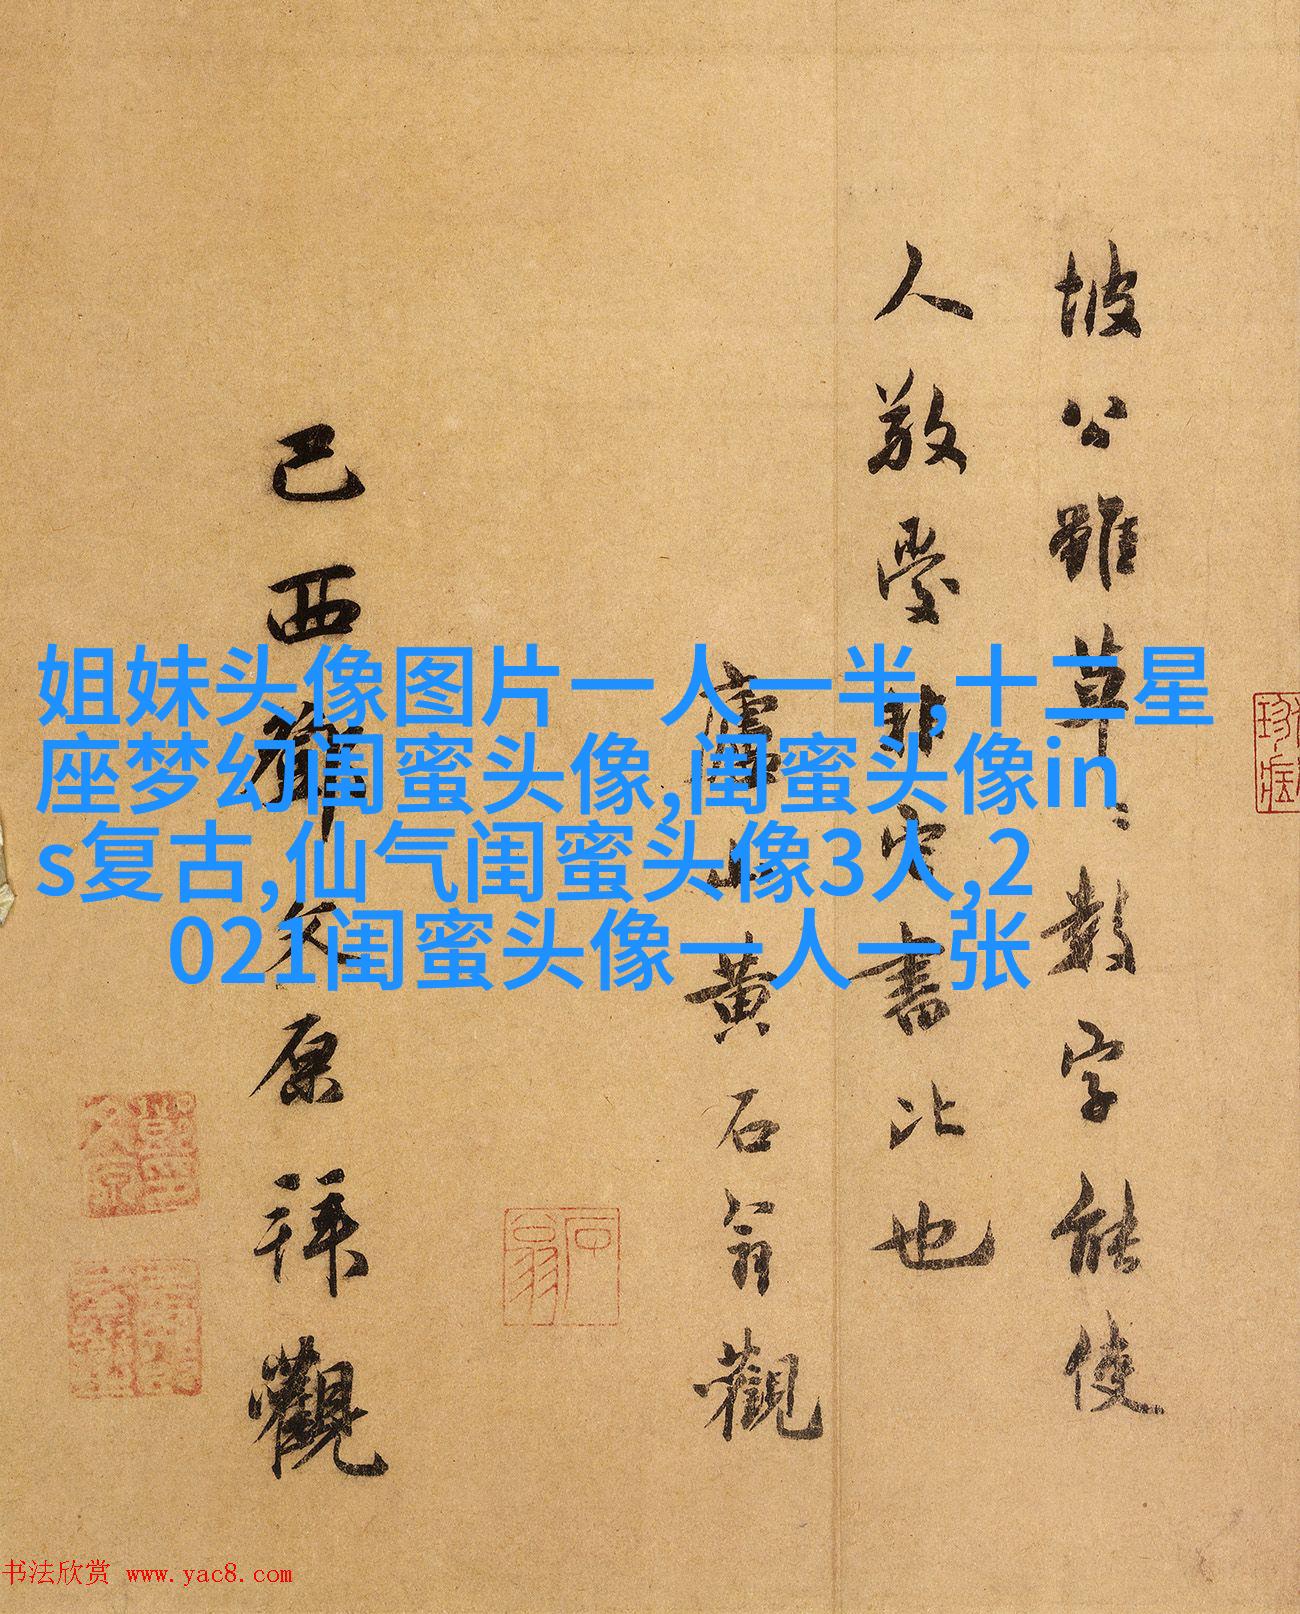 坡公雖草〻數字能使
人敬愛非它書比也
廬山黃石翁觀
己酉鄧文原拜觀
石翁
姐妹头像图片一人一半,十二星
座梦幻闺蜜头像,闺蜜头像in
s复古,仙气闺蜜头像3人,2
021闺蜜头像一人一张
书法欣赏 www.yac8.com